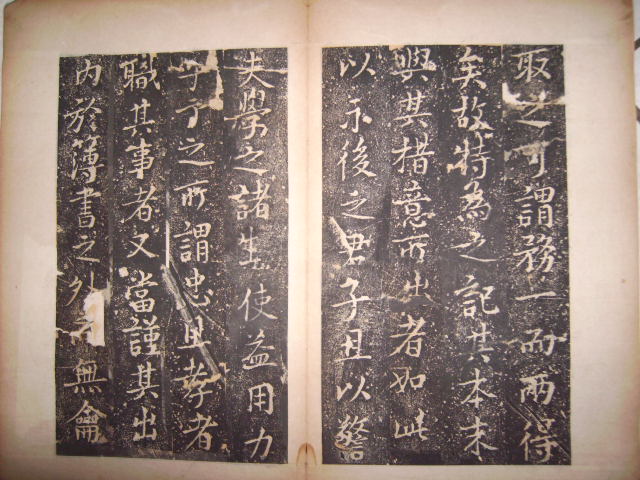 取之可謂務一而兩得
矣故特為之記其本末
與其措意所出者如此
以示後之君子且以警
夫學之諸生使益用力
于子之所謂忠且孝者
職其事者又當謹其出
內於簿書之外而無龠